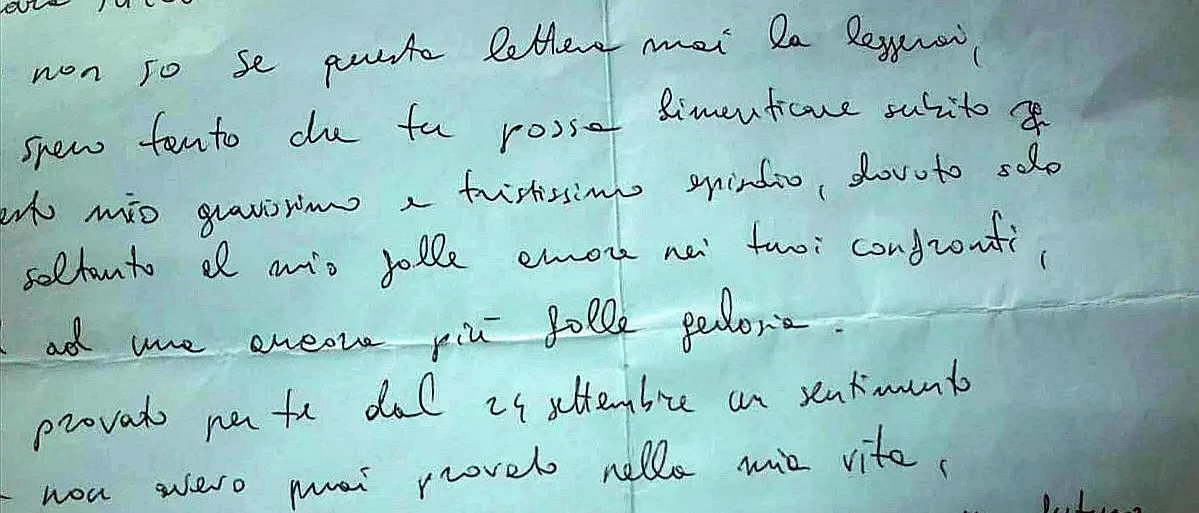 non so se questa lettera mai la leggerai,
spero tanto che tu possa dimenticare subito qu
esto mio gravissimo e tristissimo episodio, dovuto solo
soltanto al mio folle amore nei tuoi confronti,
ad una ancora più folle gelosia.
provato per te dal 24 settembre un sentimento
non avevo mai provato nella mia vita,